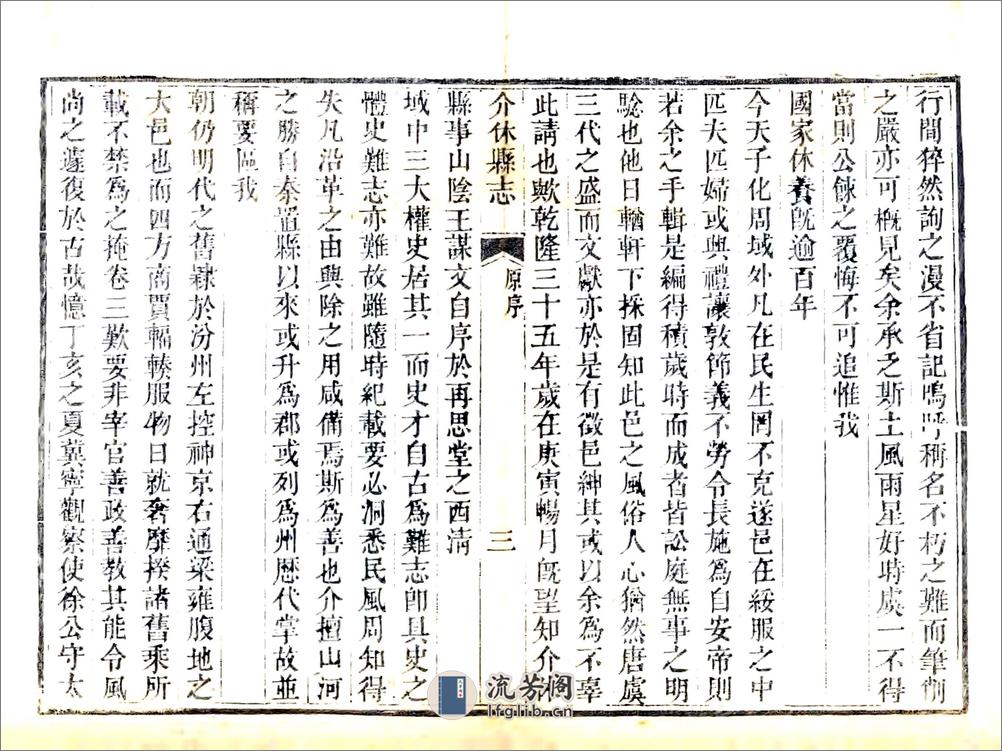 行間猝然詢之漫不省記嗚呼稱名不朽之難而筆削
之嚴亦可概見矣余承乏斯土風雨星好時虞一不得
當則公餗之覆悔不可追惟我
國家休養旣逾百年
今天子化周域外凡在民生罔不克遂邑在綏服之中
匹夫匹婦或興禮讓敦節義不勞令長施爲自安帝則
若余之手輯是編得積歲時而成者皆訟庭無事之明
驗也他日輶軒下採固知此邑之風俗人心猶然唐虞
三代之盛而文獻亦於是有徵邑紳其或以余爲不辜
此請也歟乾隆三十五年歲在庚寅暢月旣望知介休
縣事山陰王謀文自序於再思堂之西淸
介休縣志
原序
三
域中三大權史居其一而史才自古爲難志卽具史之
體史難志亦難故雖隨時紀載要必洞悉民風周知得
失凡沿革之由興除之用咸備焉斯爲善也介擅山河
之勝自秦置縣以來或升爲郡或列爲州歷代掌故並
稱要區我
朝仍明代之舊隸於汾州左控神京右通梁雍腹地之
大邑也而四方商賈輻輳服物日就奢靡揆諸舊乘所
載不禁爲之掩卷三歎要非宰官善政善教其能令風
尚之遽復於古哉憶丁亥之夏冀寧觀察使徐公守太
流芳阁
lfglib.cn